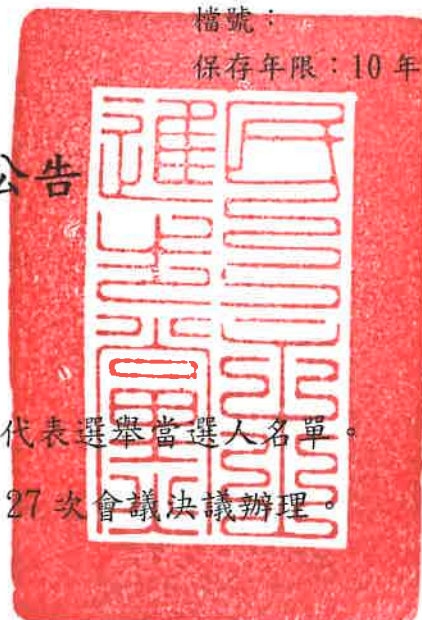 檔號：
保存年限：10 年
公告
代表選舉當選人名單。
27 次會議決議辦理。